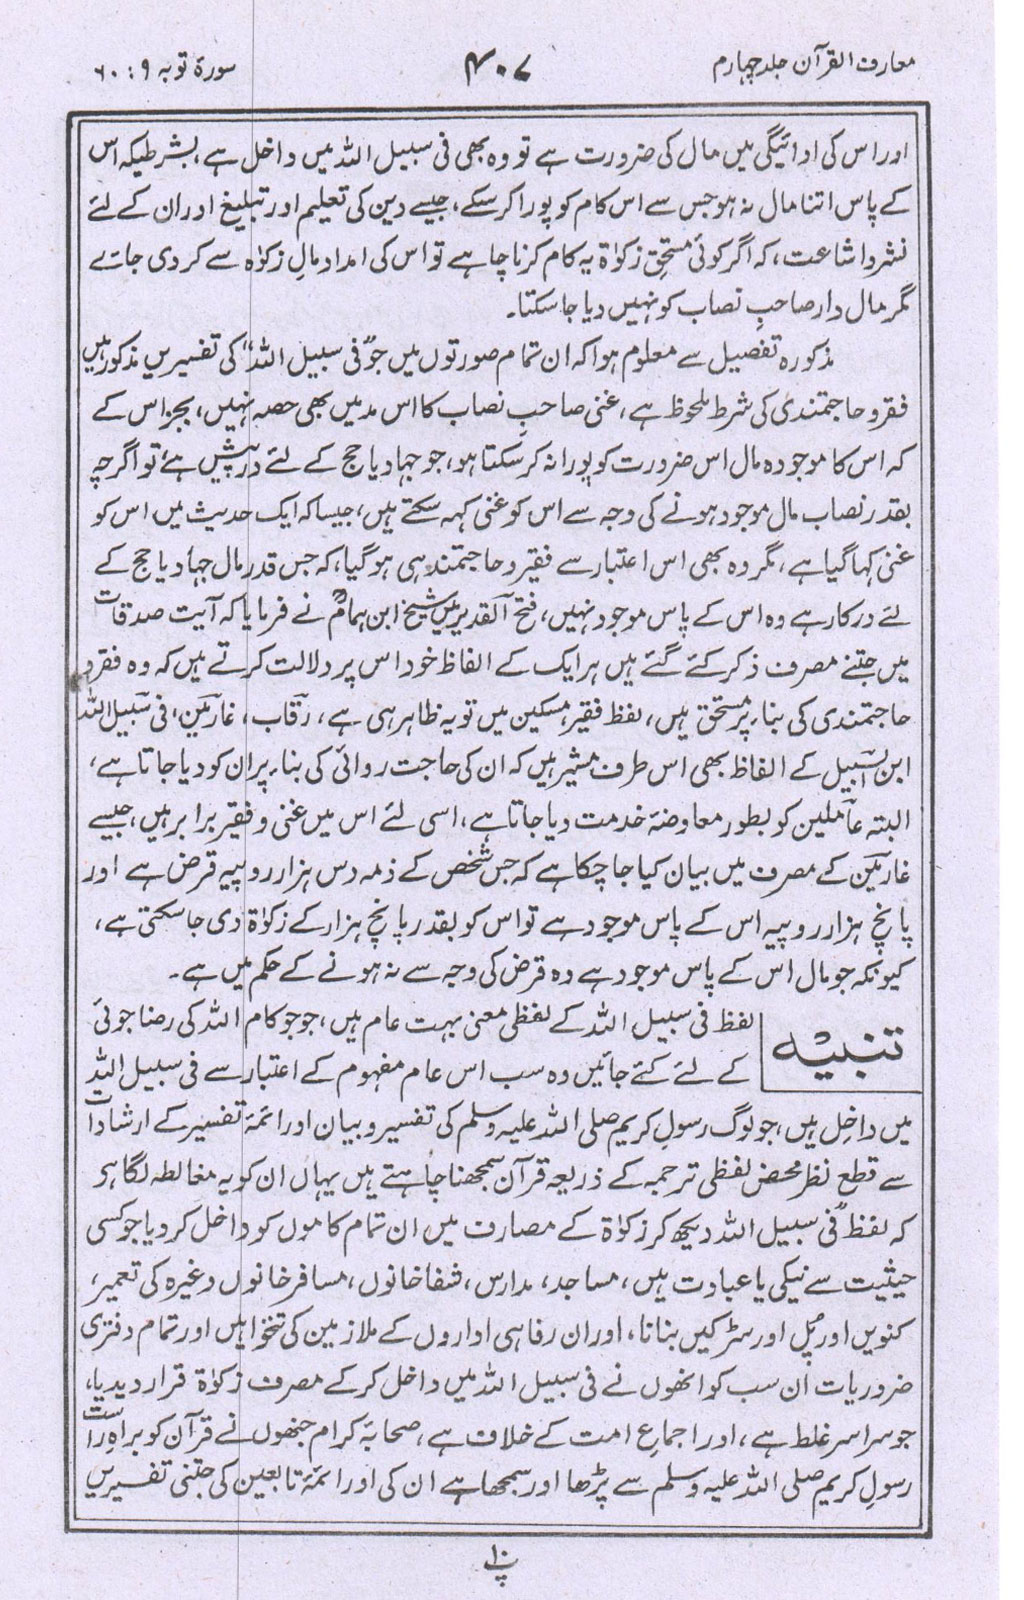 معارف القرآن جلد چہارم
۴۰۷
سورۃ توبہ ۹ : ۶۰
اور اس کی ادائیگی میں مال کی ضرورت ہے تو وہ بھی فی سبیل اللہ میں داخل ہے، بشرطیکہ اس
کے پاس اتنا مال نہ ہو جس سے اس کام کو پورا کر سکے، جیسے دین کی تعلیم اور تبلیغ اور ان کے لئے
نشر و اشاعت، کہ اگر کوئی مستحق زکوٰۃ یہ کام کرنا چاہے تو اس کی امداد مالِ زکوٰۃ سے کر دی جائے
مگر مال دار صاحبِ نصاب کو نہیں دیا جا سکتا۔
مذکورہ تفصیل سے معلوم ہوا کہ ان تمام صورتوں میں جو "فی سبیل اللہ" کی تفسیر میں مذکور ہیں
فقر و حاجتمندی کی شرط ملحوظ ہے، غنی صاحبِ نصاب کا اس مد میں بھی حصہ نہیں، بجز اس کے
کہ اس کا موجودہ مال اس ضرورت کو پورا نہ کر سکتا ہو، جو جہاد یا حج کے لئے درپیش ہے، تو اگرچہ
بقدر نصاب مال موجود ہونے کی وجہ سے اس کو غنی کہہ سکتے ہیں، جیسا کہ ایک حدیث میں اس کو
غنی کہا گیا ہے، مگر وہ بھی اس اعتبار سے فقیر و حاجتمند ہی ہو گیا، کہ جس قدر مال جہاد یا حج کے
لئے درکار ہے وہ اس کے پاس موجود نہیں، فتح القدیر میں شیخ ابن ہمامؒ نے فرمایا کہ آیت صدقات
میں جتنے مصرف ذکر کئے گئے ہیں ہر ایک کے الفاظ خود اس پر دلالت کرتے ہیں کہ وہ فقر و
حاجتمندی کی بناء پر مستحق ہیں، لفظ فقیر، مسکین میں تو یہ ظاہر ہی ہے، رقاب، غارمین، فی سبیل اللہ
ابن السبیل کے الفاظ بھی اس طرف مشیر ہیں کہ ان کی حاجت روائی کی بناء پر ان کو دیا جاتا ہے،
البتہ عاملین کو بطور معاوضۂ خدمت دیا جاتا ہے، اسی لئے اس میں غنی و فقیر برابر ہیں، جیسے
غارمین کے مصرف میں بیان کیا جا چکا ہے کہ جس شخص کے ذمہ دس ہزار روپیہ قرض ہے اور
پانچ ہزار روپیہ اس کے پاس موجود ہے تو اس کو بقدر پانچ ہزار کے زکوٰۃ دی جا سکتی ہے،
کیونکہ جو مال اس کے پاس موجود ہے وہ قرض کی وجہ سے نہ ہونے کے حکم میں ہے۔
تنبیہ
لفظ فی سبیل اللہ کے لفظی معنی بہت عام ہیں، جو جو کام اللہ کی رضا جوئی
کے لئے کئے جائیں وہ سب اس عام مفہوم کے اعتبار سے فی سبیل اللہ
میں داخل ہیں، جو لوگ رسولِ کریم صلی اللہ علیہ وسلم کی تفسیر و بیان اور ائمۂ تفسیر کے ارشادات
سے قطع نظر محض لفظی ترجمہ کے ذریعہ قرآن سمجھنا چاہتے ہیں یہاں ان کو یہ مغالطہ لگا ہے
کہ لفظ "فی سبیل اللہ" دیکھ کر زکوٰۃ کے مصارف میں ان تمام کاموں کو داخل کر دیا جو کسی
حیثیت سے نیکی یا عبادت ہیں، مساجد، مدارس، شفاخانوں، مسافرخانوں وغیرہ کی تعمیر،
کنویں اور پُل اور سڑکیں بنانا، اور ان رفاہی اداروں کے ملازمین کی تنخواہیں اور تمام دفتری
ضروریات ان سب کو انھوں نے فی سبیل اللہ میں داخل کر کے مصرف زکوٰۃ قرار دیدیا،
جو سراسر غلط ہے، اور اجماع امت کے خلاف ہے، صحابۂ کرام جنھوں نے قرآن کو براہِ راست
رسولِ کریم صلی اللہ علیہ وسلم سے پڑھا اور سمجھا ہے ان کی اور ائمۂ تابعین کی جتنی تفسیریں